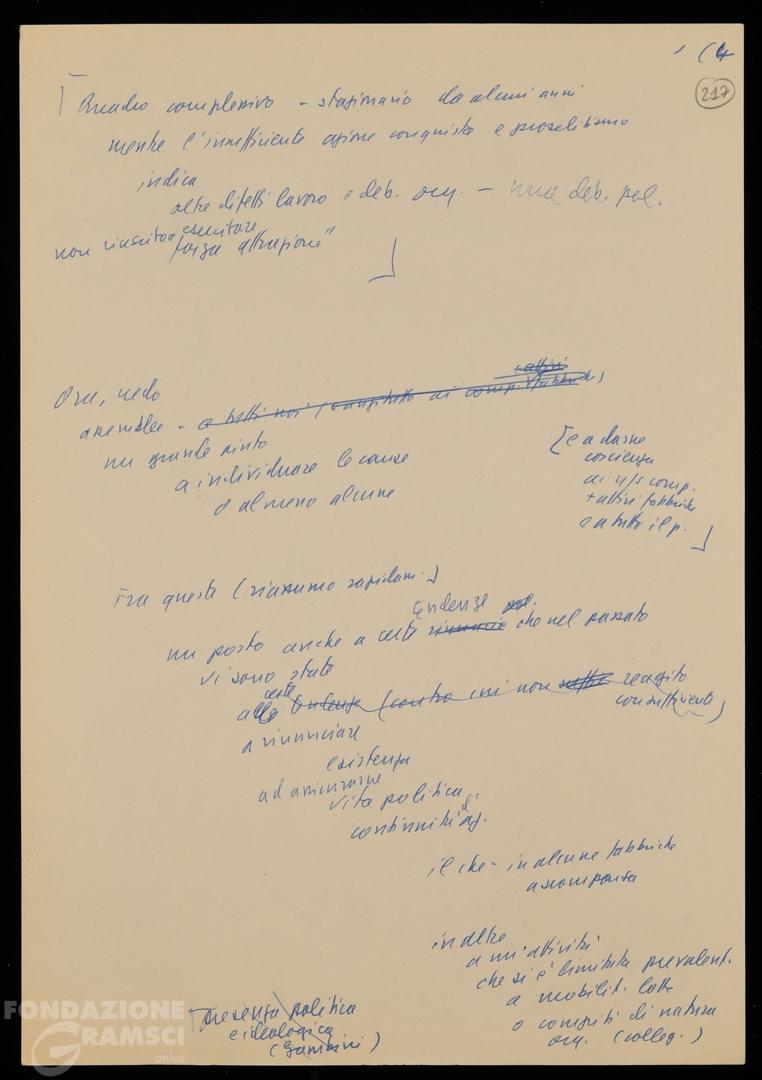 (4
217
Quadro complessivo - stazionario da alcuni anni
mentre l'insufficiente azione conquista e proselitismo
indica
oltre difetti lavoro e deb. org. - una deb. pol.
non riuscita esercitare
forza attrazione"
Ora, vedo
assemblee - a tutti noi
+ attivi
un grande aiuto
a individuare le cause
o almeno alcune
[e a darne
coscienza
ai n/s comp.
+ attivi fabbriche
e a tutto il p.
Fra queste (riassumo rapidam.)
tendenze
un posto anche a certe rinuncie che nel passato
vi sono state
certe
alle tendenze (contro cui non reagito
con sufficiente)
a rinunciare
esistenza
ad assicurarne
vita politica
continuità di ag.
il che - in alcune fabbriche
a scomparsa
in altre
a un'attività
che si è limitata prevalent.
a mobilit. lotte
o compiti di natura
org. (colleg.)
presenza politica
e ideologica
(Gambini)
FONDAZIONE
GRAMSCI
onlus